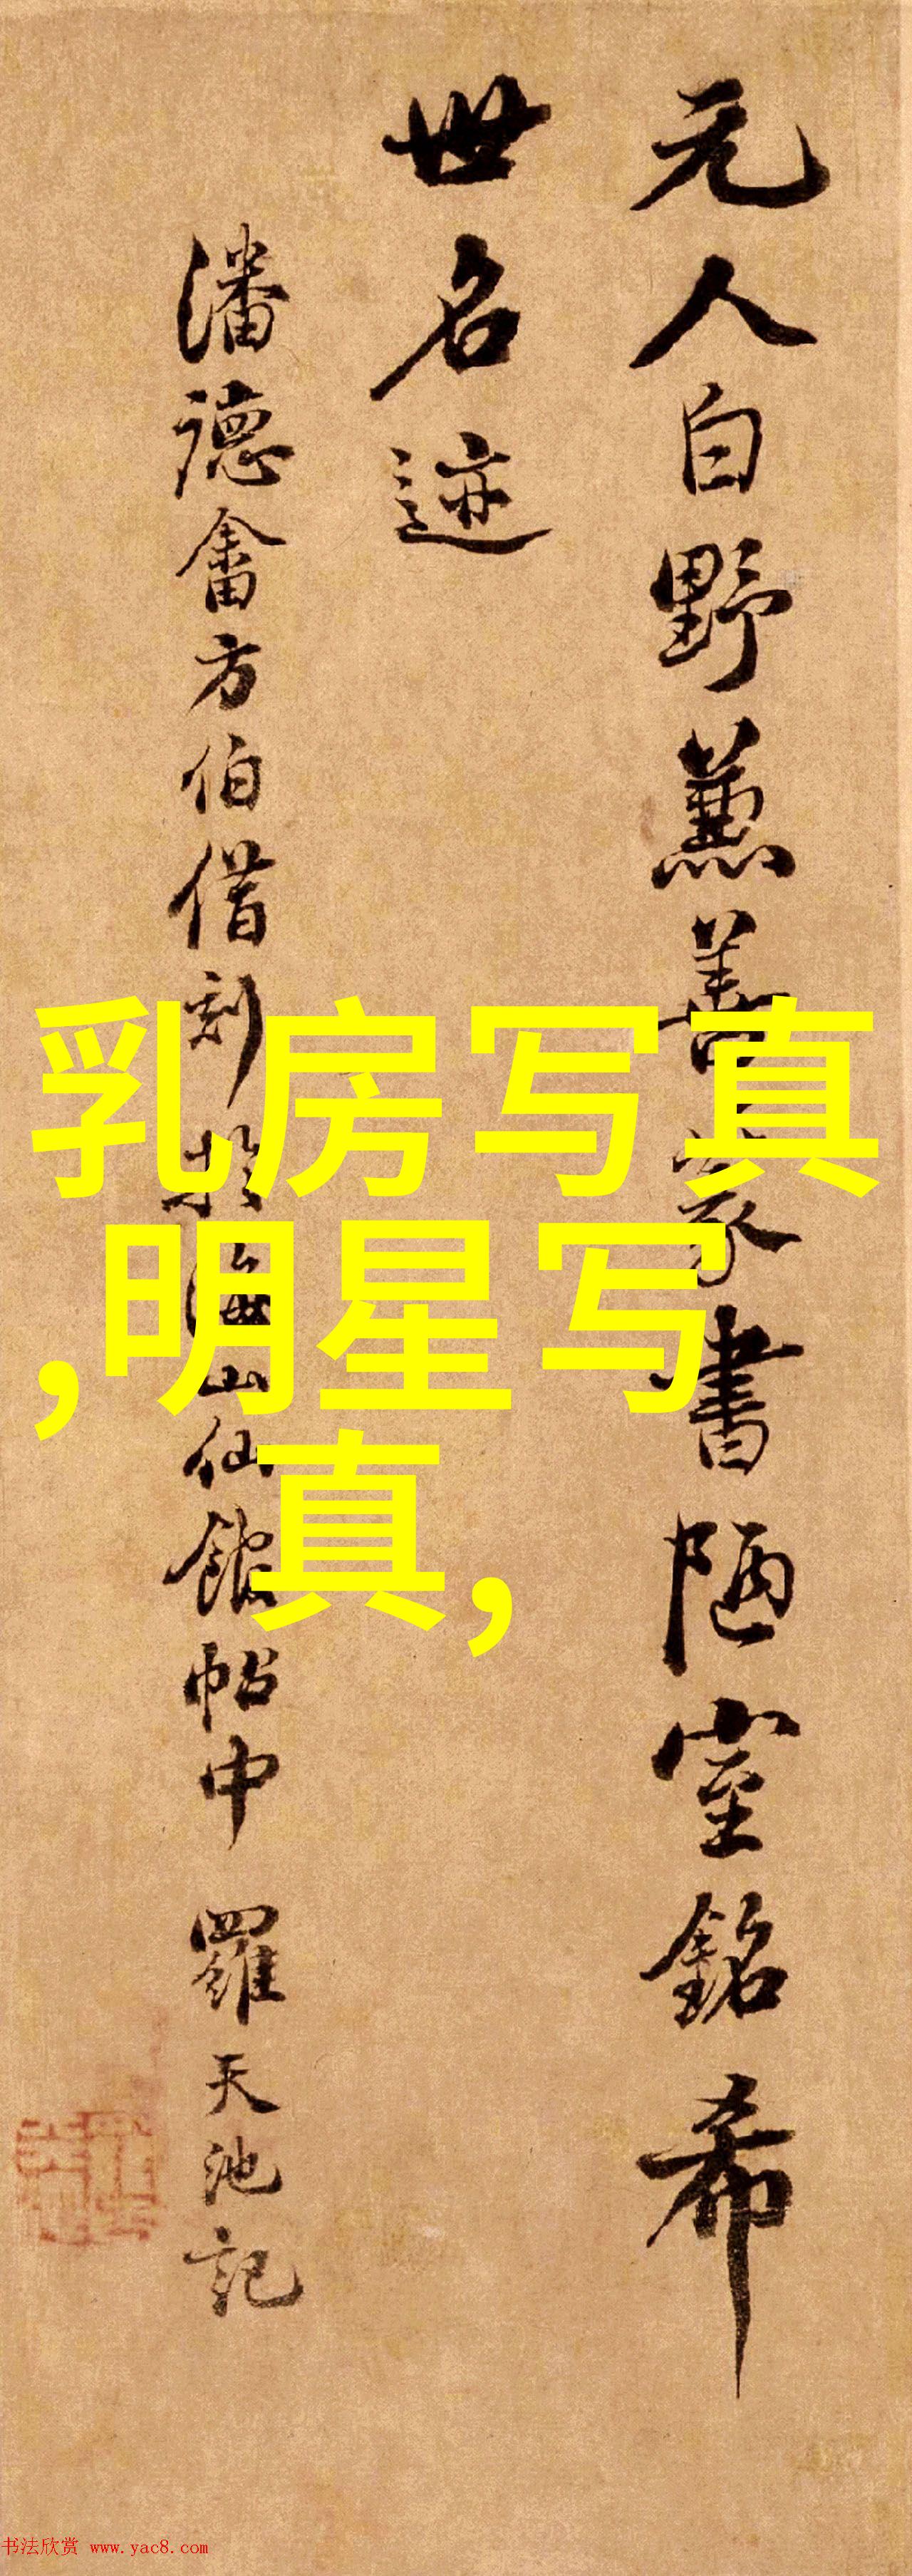 元人白野蕙善篆書陋室銘希
世名迹
潘德畬方伯借刻於海山仙館帖中 羅天池記
乳房写真
,明星写
真,
书法欣赏 www.yac8.com